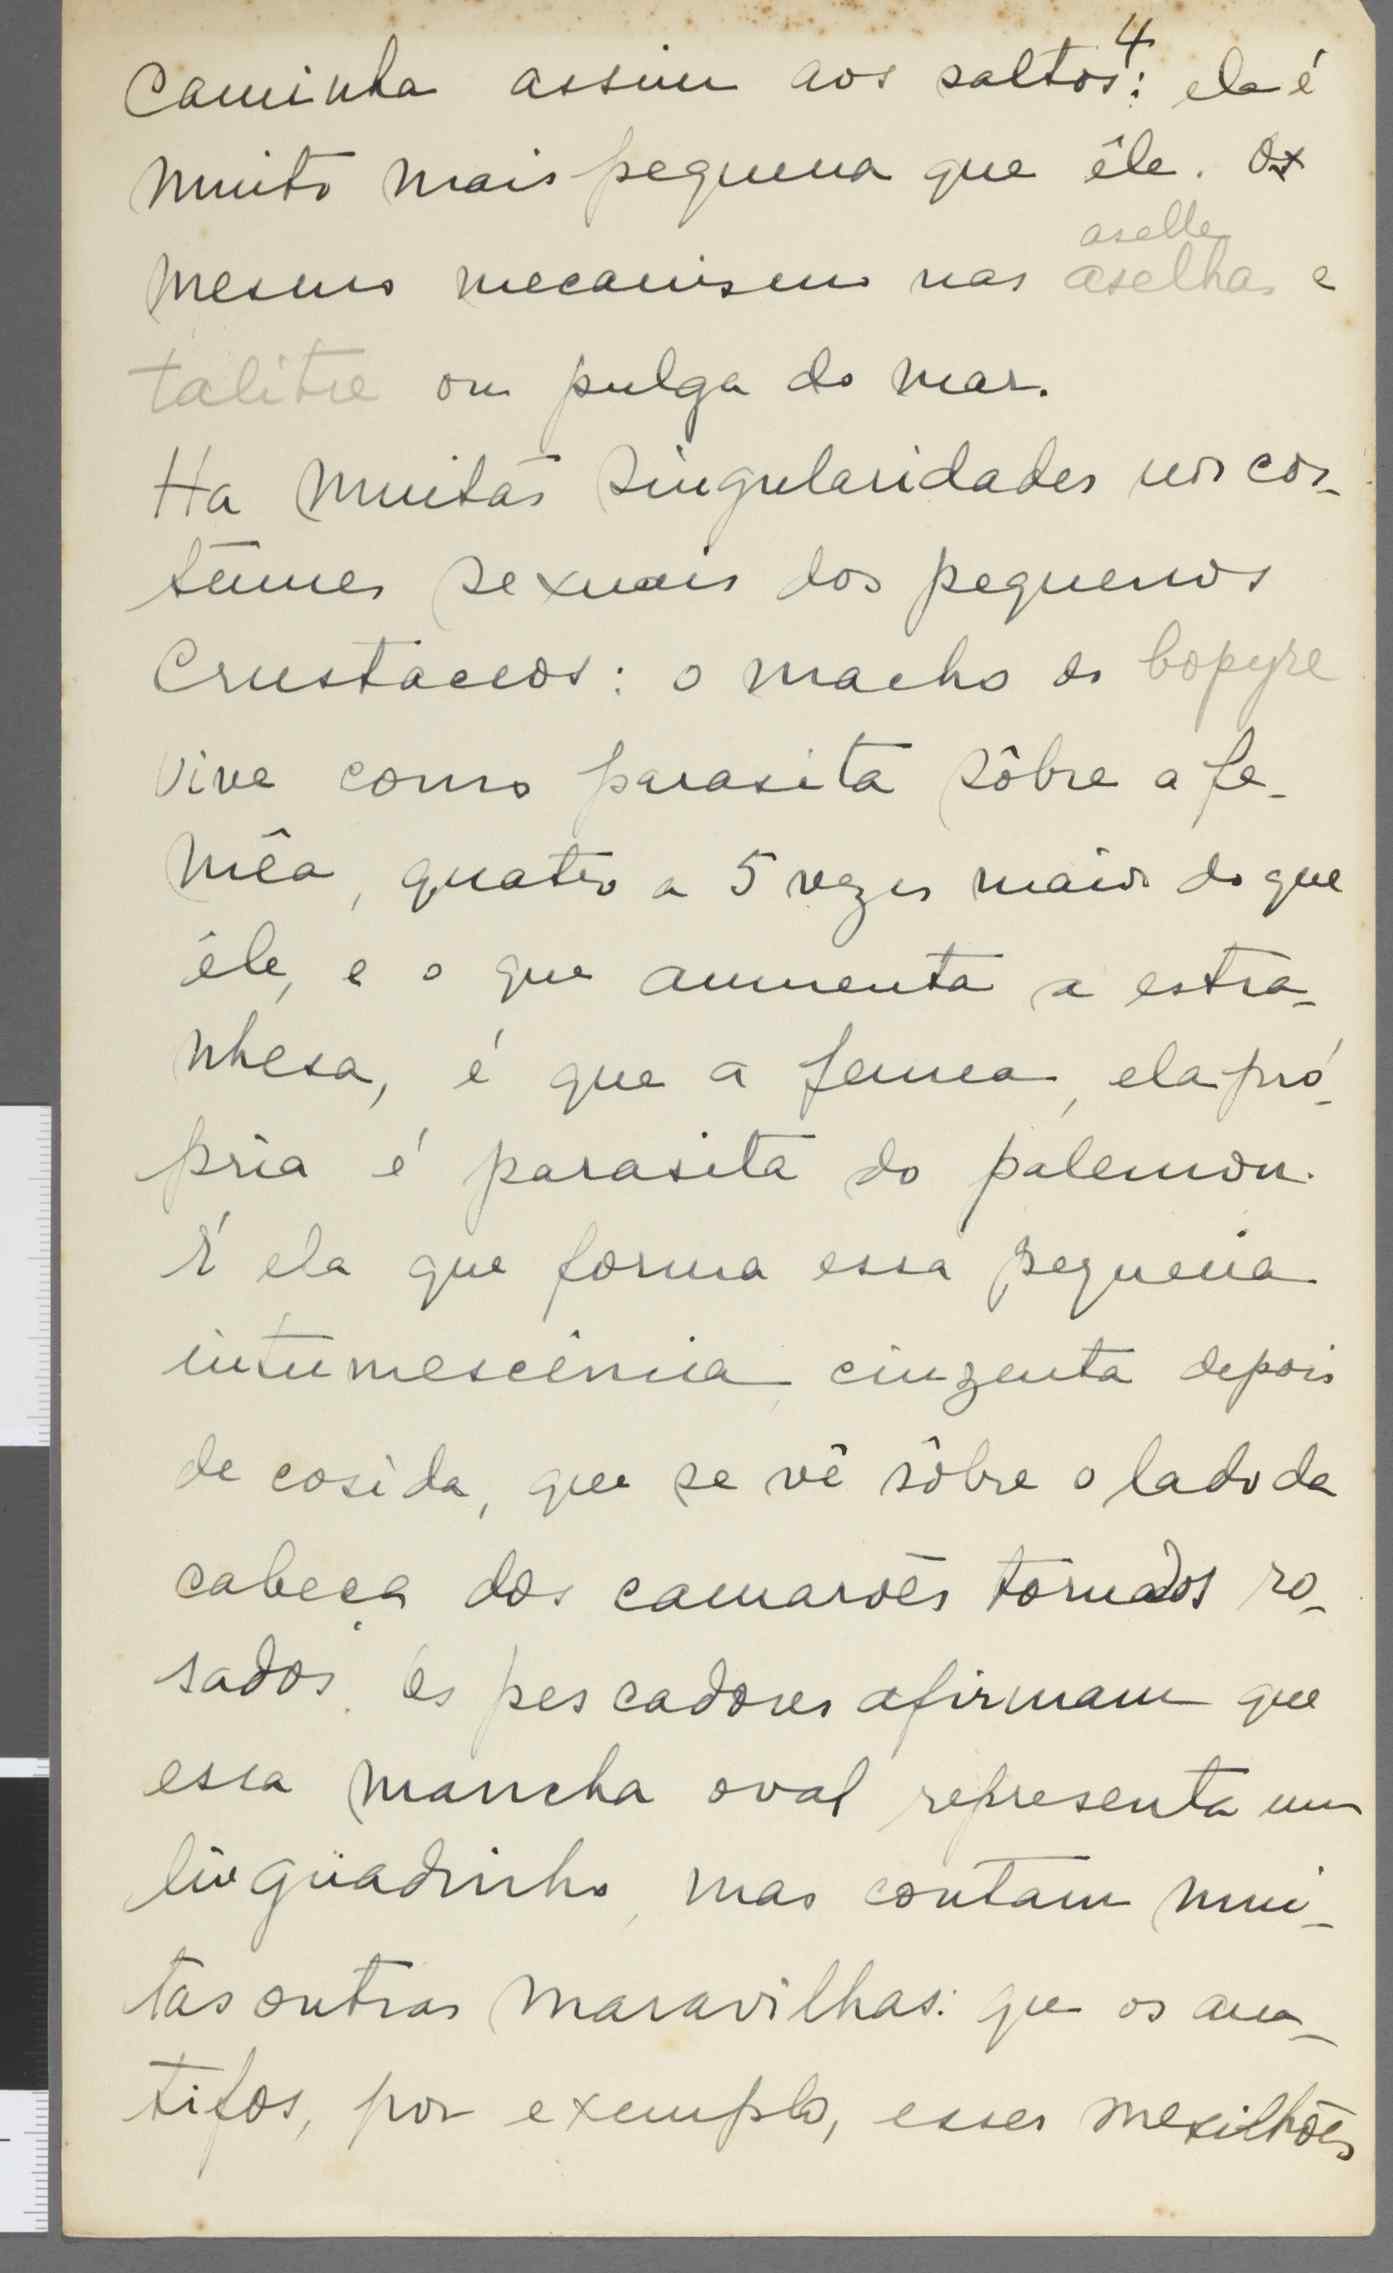 4
caminha assim aos saltos: ela é
muito mais pequena que êle. O
mesmo mecanismo nas aselhas e
aselle
talitre ou pulga do mar.
Ha muitas singularidades nos cos-
tumes sexuais dos pequenos
crustaceos: o macho do bopyre
vive como parasita sôbre a fe-
mêa, quatro a 5 vezes maior do que
êle, e o que aumenta a estra-
nhesa, é que a femea, ela pró-
pria é parasita do palemon.
É ela que forma essa pequena
intumescência cinzenta depois
de cosida, que se vê sôbre o lado da
cabeça dos camarões tornados ro-
sados. Os pescadores afirmam que
essa mancha oval representa um
lingüadinho, mas contam mui-
tas outras maravilhas: que os ana-
tifos, por exemplo, esses mexilhões